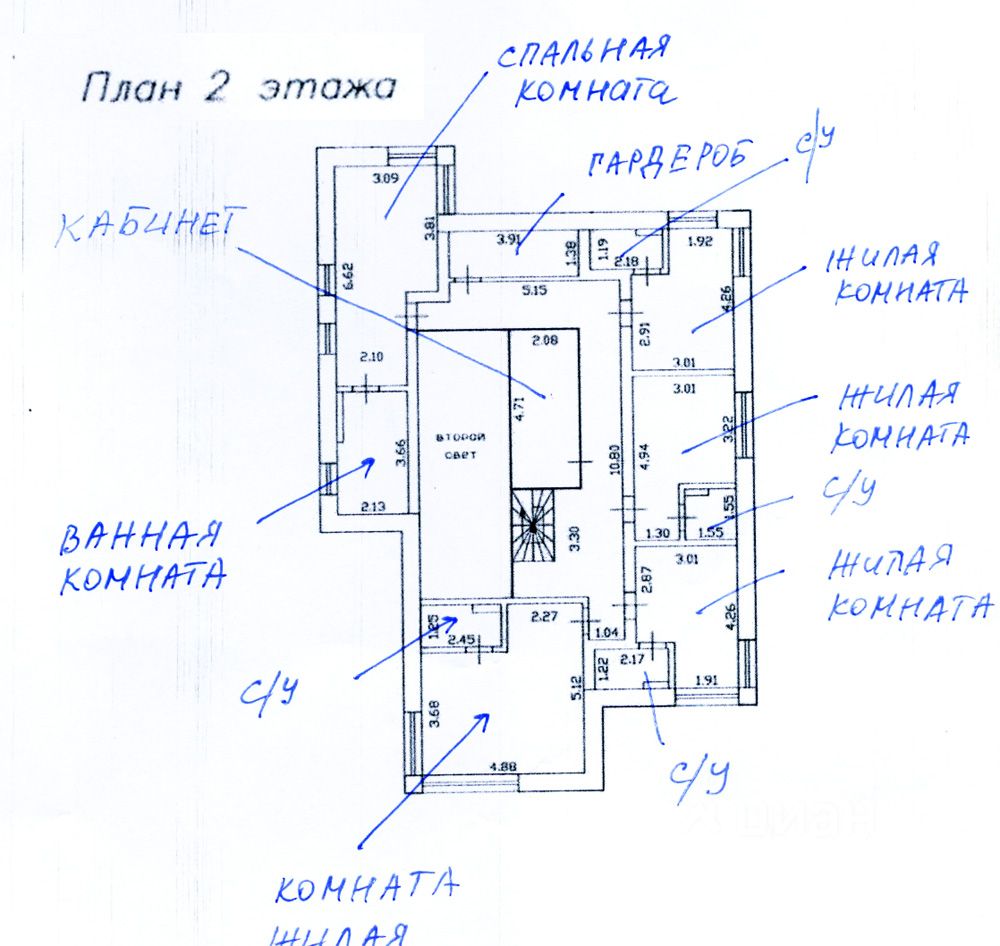 План 2 этажа
СПАЛЬНАЯ
КОМНАТА
ГАРДЕРОБ
С/У
КАБИНЕТ
3.09
3.81
6.62
2.10
3.91
1.38
1.19
2.18
1.92
4.26
2.91
3.01
5.15
ЖИЛАЯ
КОМНАТА
2.08
4.71
ВТОРОЙ
СВЕТ
10.80
3.30
3.01
3.22
4.94
1.30
1.55
1.55
ЖИЛАЯ
КОМНАТА
С/У
3.66
2.13
ВАННАЯ
КОМНАТА
3.01
2.87
4.26
1.91
ЖИЛАЯ
КОМНАТА
1.25
2.45
2.27
1.04
1.22
2.17
5.12
3.68
4.88
С/У
С/У
циан
КОМНАТА
ЖИЛАЯ